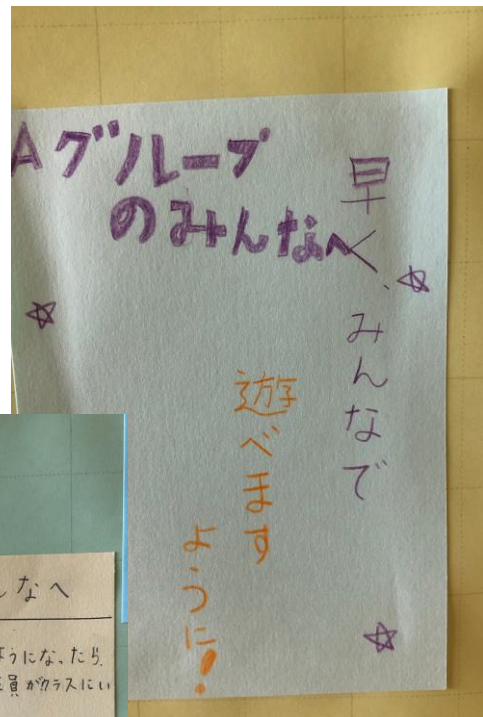 Aグループ
のみんなへ
早く、みんなで
遊べます
ように!
んなへ
ようになったら
員がクラスにい